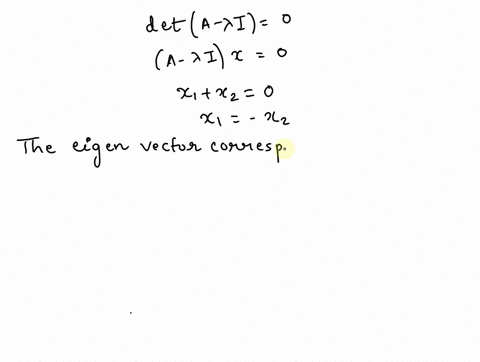 det(A-λI) = 0
(A-λI) x = 0
x₁ + x₂ = 0
x₁ = - x₂
The eigen vector corresp